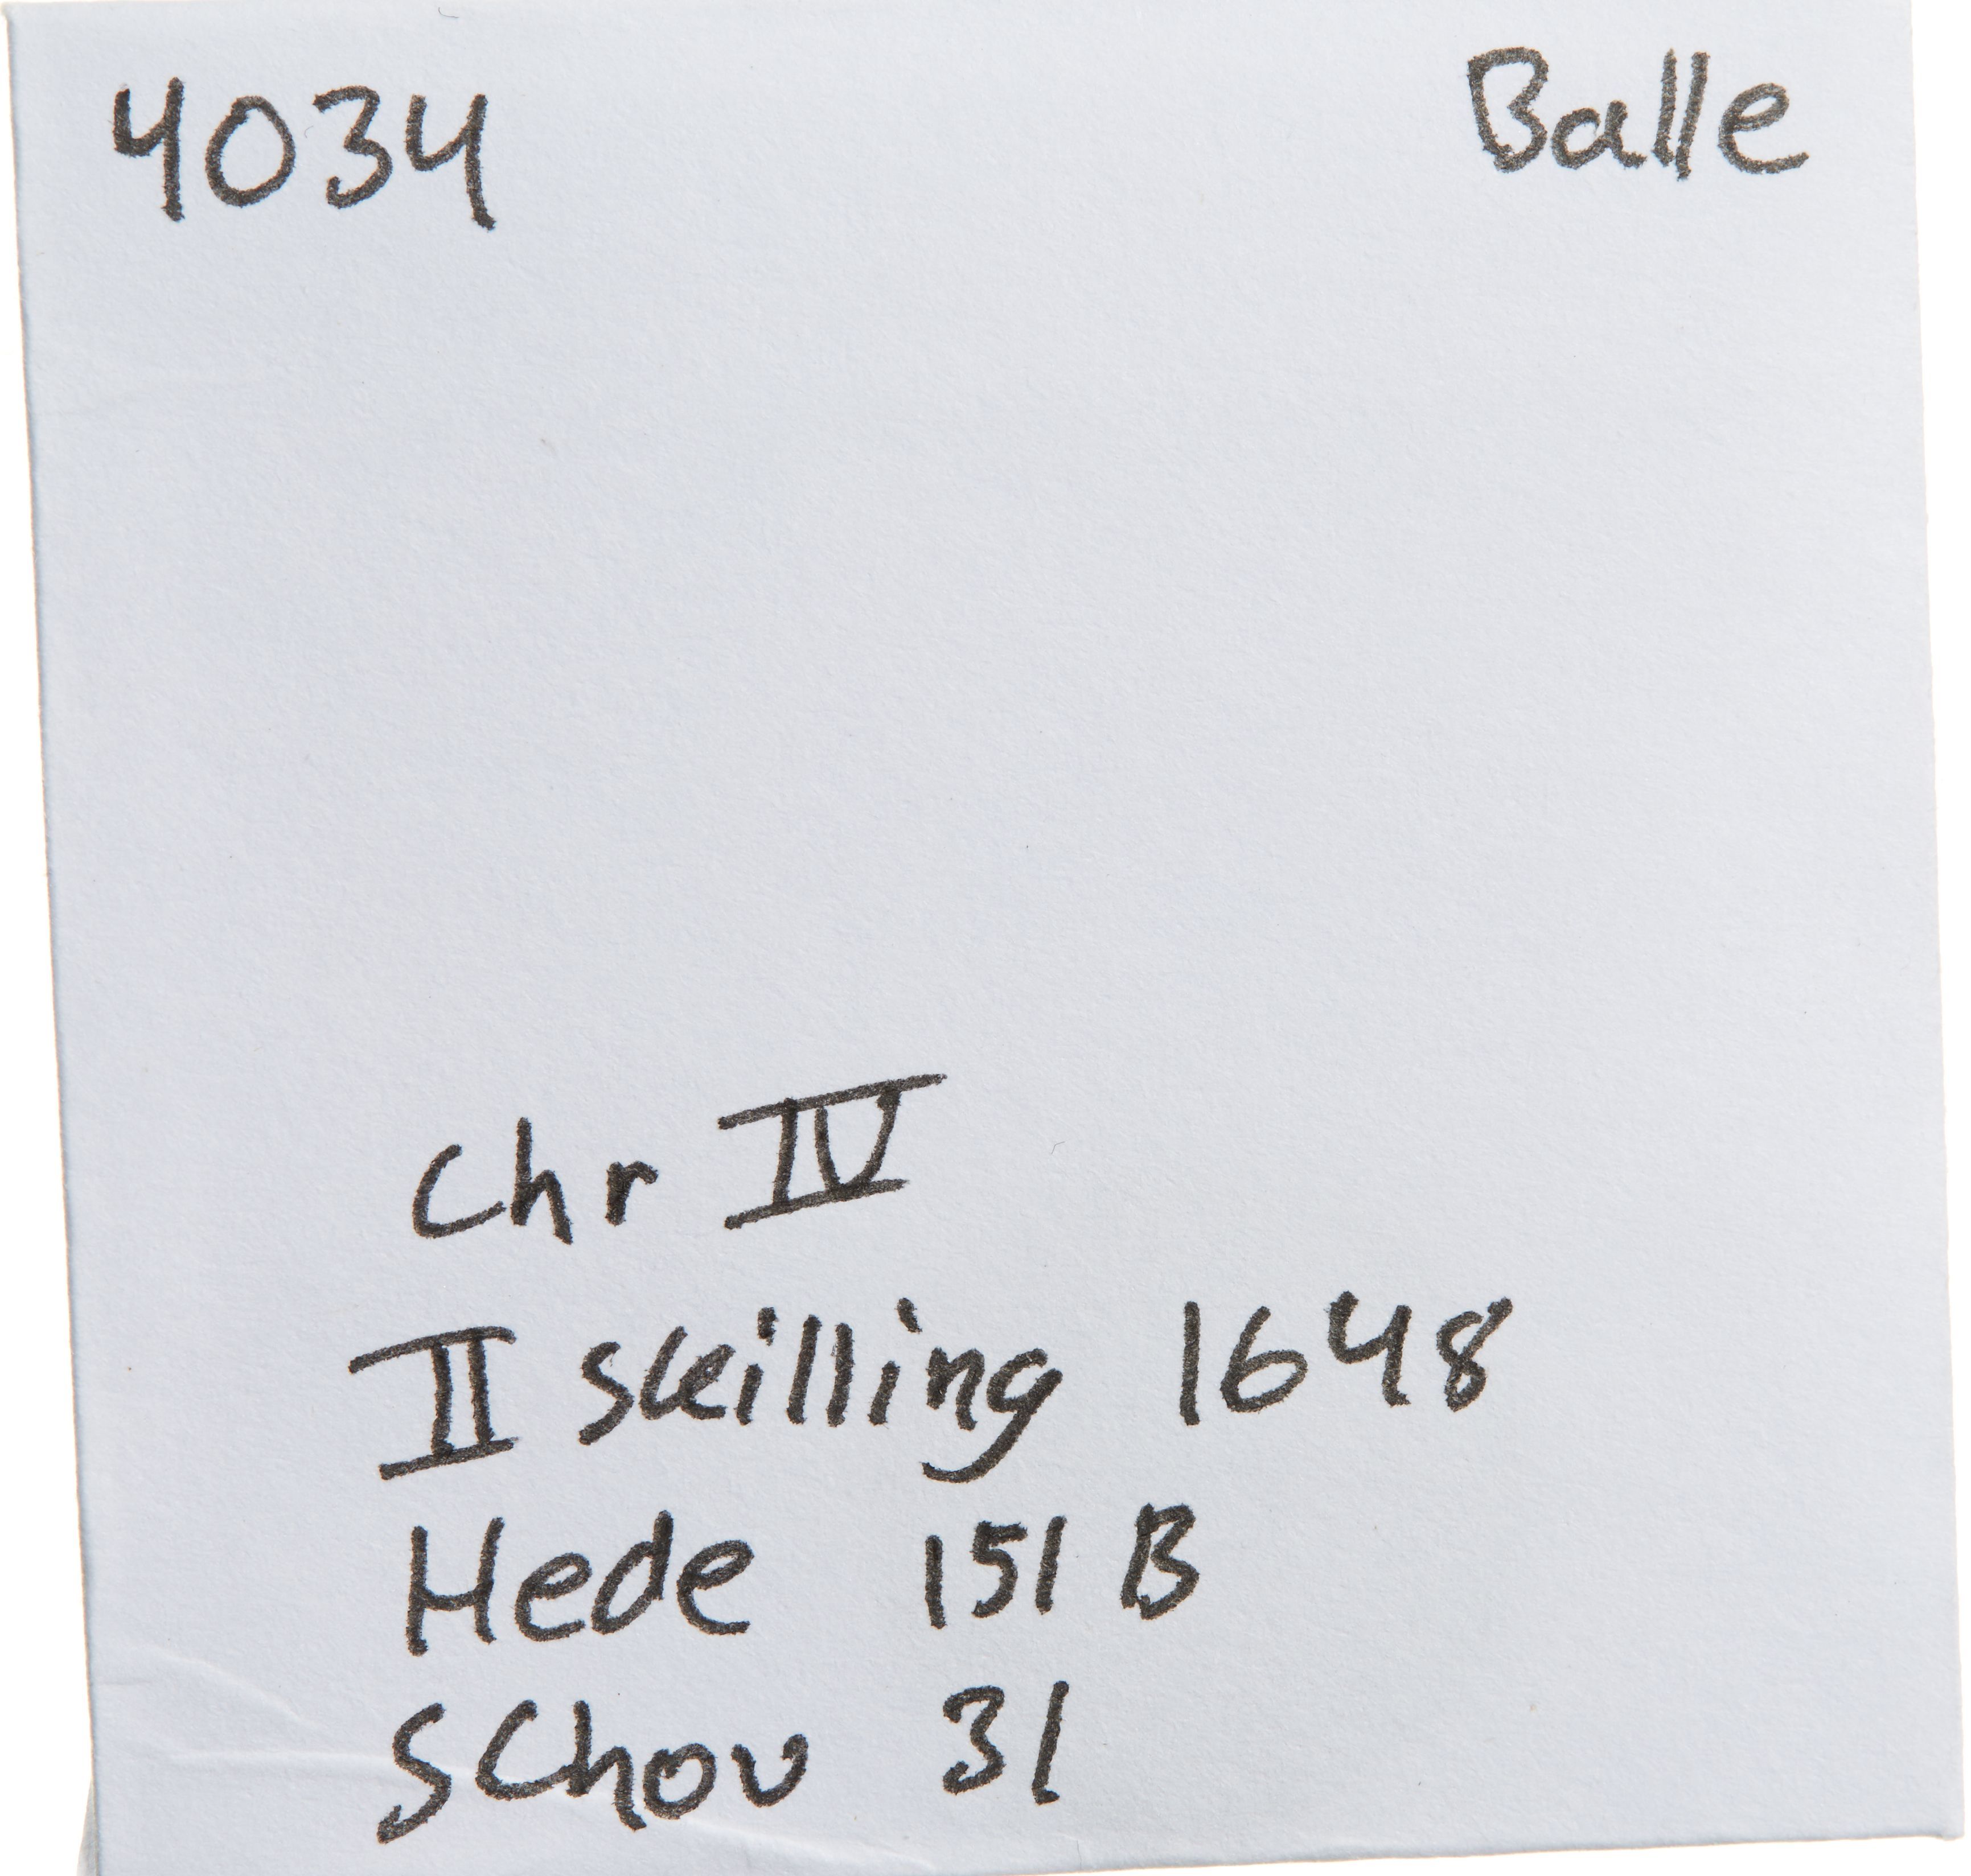 4034 Balle
Chr IV
II skilling 1648
Hede 151 B
Schou 31